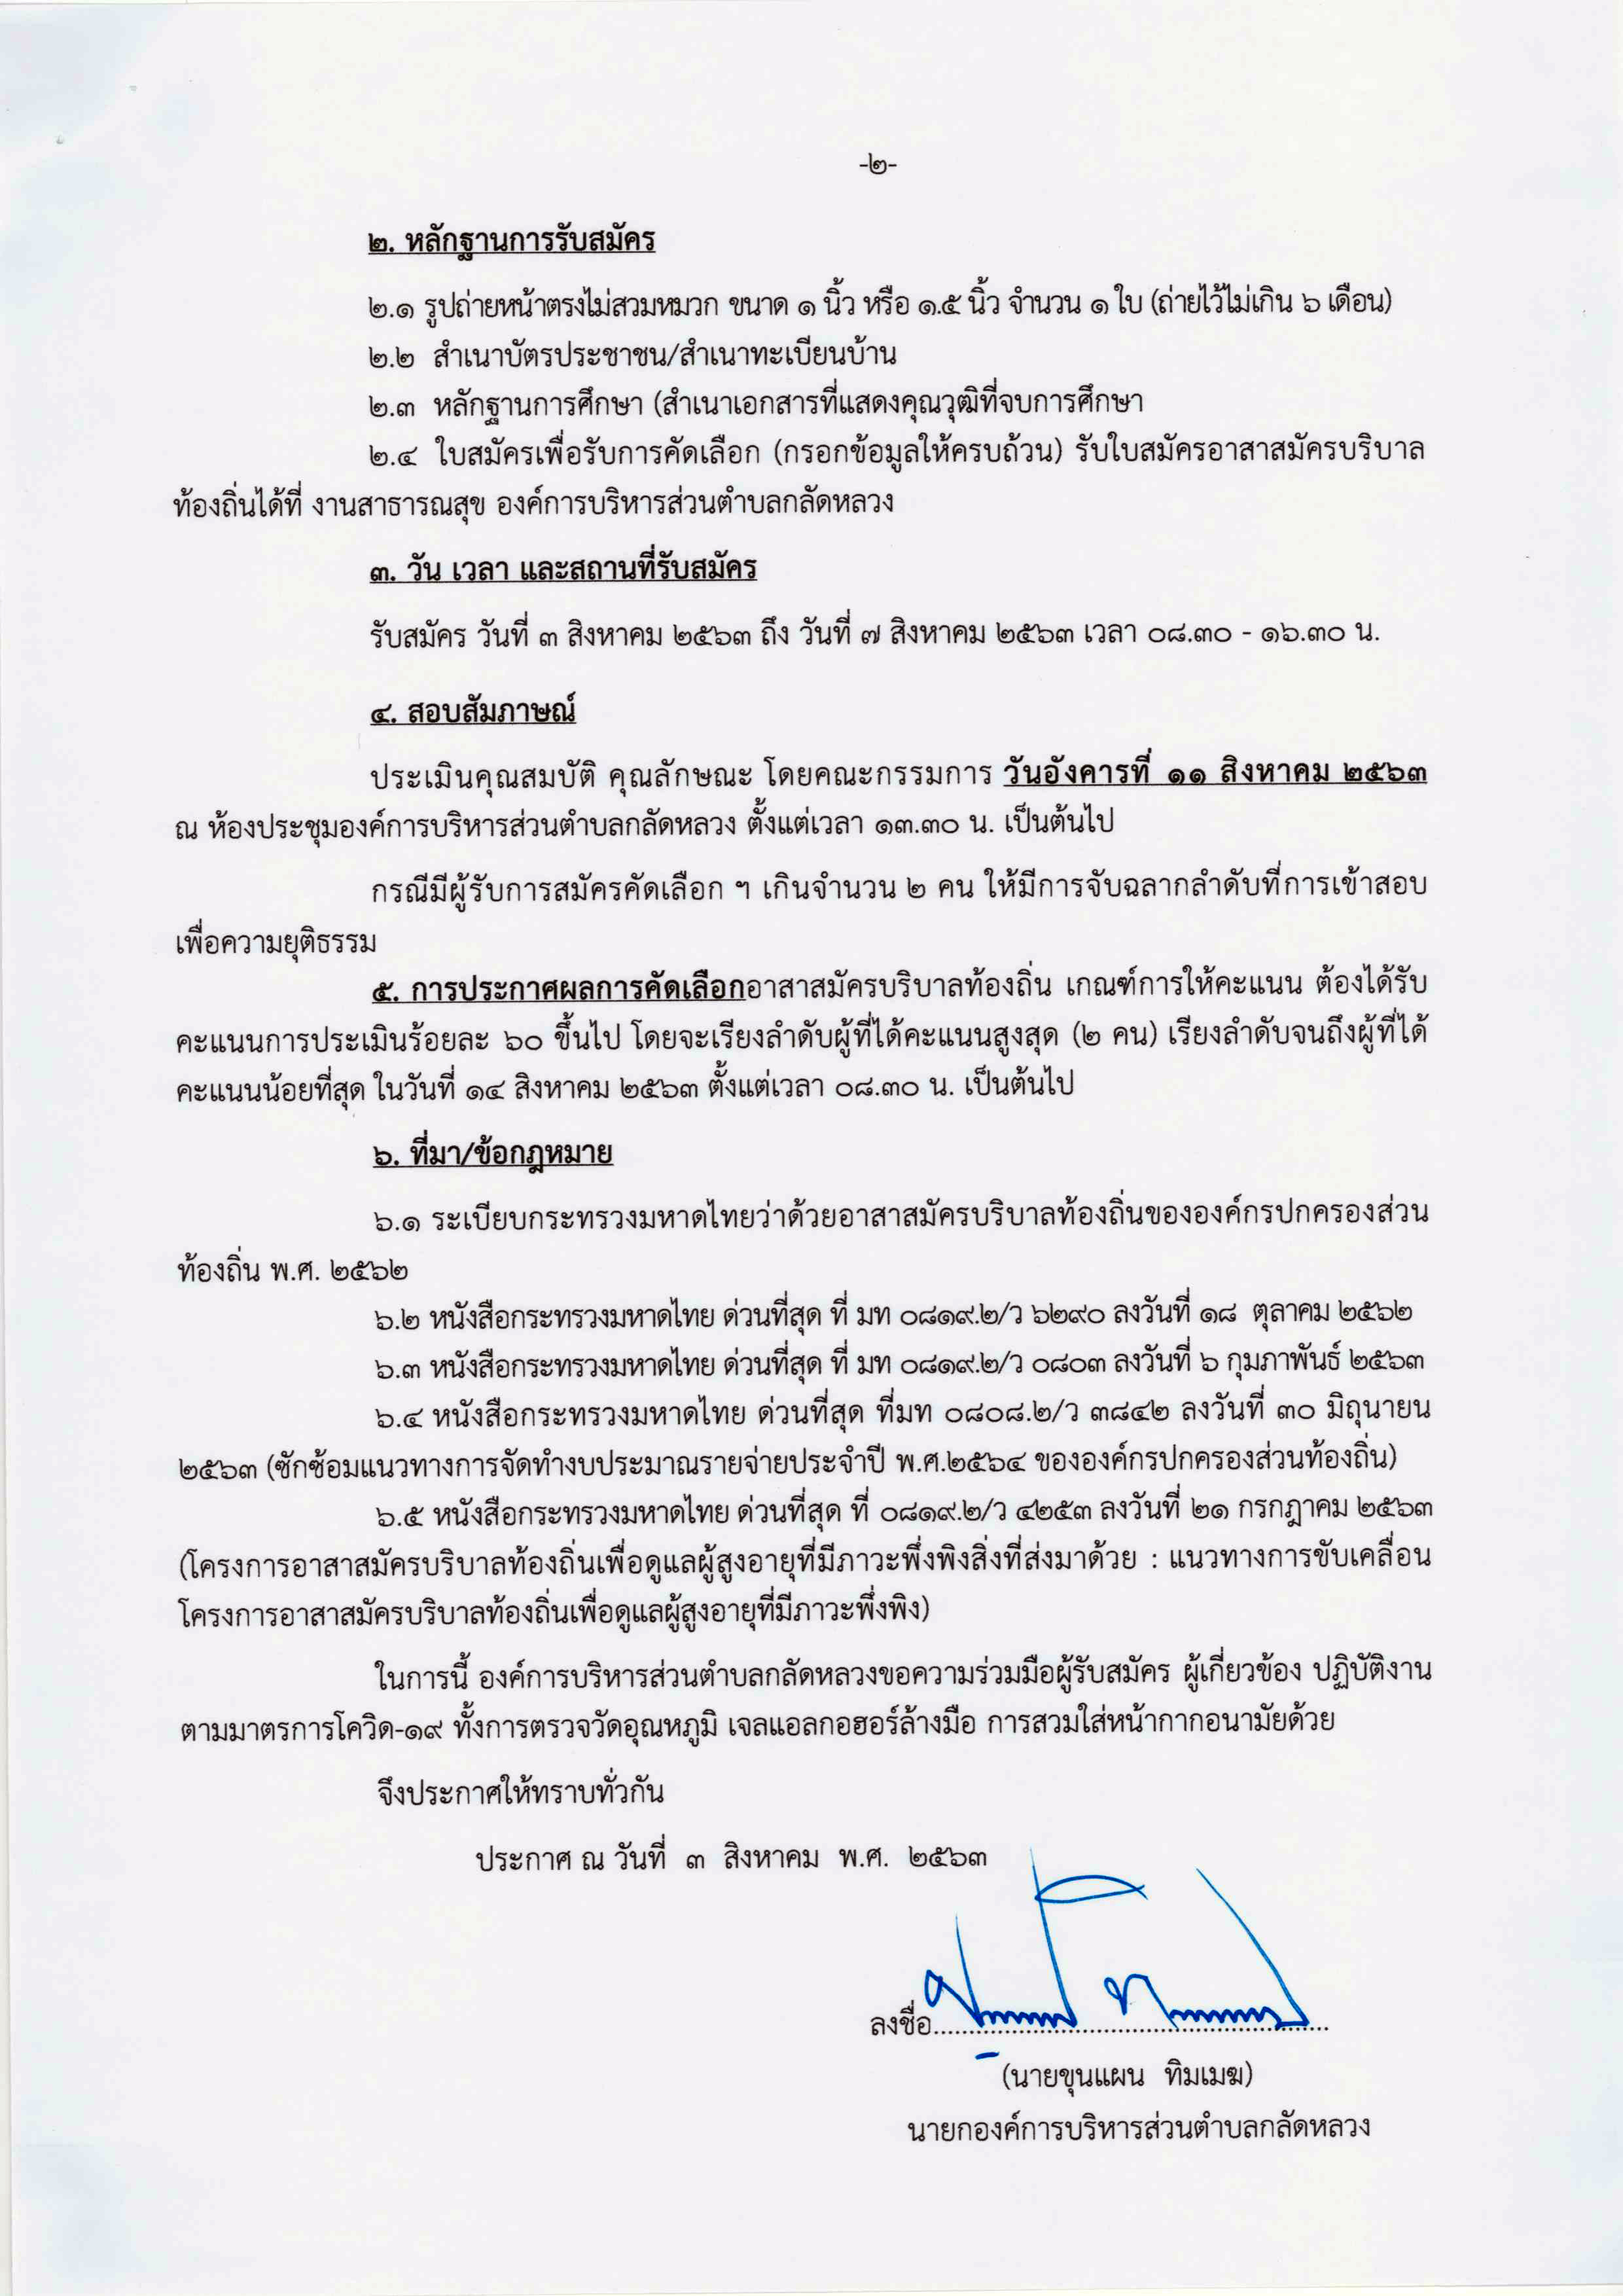 -๒-
๒. หลักฐานการรับสมัคร
๒.๑ รูปถ่ายหน้าตรงไม่สวมหมวก ขนาด ๑ นิ้ว หรือ ๑.๕ นิ้ว จำนวน ๑ ใบ (ถ่ายไว้ไม่เกิน ๖ เดือน)
๒.๒ สำเนาบัตรประชาชน/สำเนาทะเบียนบ้าน
๒.๓ หลักฐานการศึกษา (สำเนาเอกสารที่แสดงคุณวุฒิที่จบการศึกษา
๒.๔ ใบสมัครเพื่อรับการคัดเลือก (กรอกข้อมูลให้ครบถ้วน) รับใบสมัครอาสาสมัครบริบาล
ท้องถิ่นได้ที่ งานสาธารณสุข องค์การบริหารส่วนตำบลกลัดหลวง
๓. วัน เวลา และสถานที่รับสมัคร
รับสมัคร วันที่ ๓ สิงหาคม ๒๕๖๓ ถึง วันที่ ๗ สิงหาคม ๒๕๖๓ เวลา ๐๘.๓๐ - ๑๖.๓๐ น.
๔. สอบสัมภาษณ์
ประเมินคุณสมบัติ คุณลักษณะ โดยคณะกรรมการ วันอังคารที่ ๑๑ สิงหาคม ๒๕๖๓
ณ ห้องประชุมองค์การบริหารส่วนตำบลกลัดหลวง ตั้งแต่เวลา ๑๓.๓๐ น. เป็นต้นไป
กรณีมีผู้รับการสมัครคัดเลือก ฯ เกินจำนวน ๒ คน ให้มีการจับฉลากลำดับที่การเข้าสอบ
เพื่อความยุติธรรม
๕. การประกาศผลการคัดเลือกอาสาสมัครบริบาลท้องถิ่น เกณฑ์การให้คะแนน ต้องได้รับ
คะแนนการประเมินร้อยละ ๖๐ ขึ้นไป โดยจะเรียงลำดับผู้ที่ได้คะแนนสูงสุด (๒ คน) เรียงลำดับจนถึงผู้ที่ได้
คะแนนน้อยที่สุด ในวันที่ ๑๔ สิงหาคม ๒๕๖๓ ตั้งแต่เวลา ๐๘.๓๐ น. เป็นต้นไป
๖. ที่มา/ข้อกฎหมาย
๖.๑ ระเบียบกระทรวงมหาดไทยว่าด้วยอาสาสมัครบริบาลท้องถิ่นขององค์กรปกครองส่วน
ท้องถิ่น พ.ศ. ๒๕๖๒
๖.๒ หนังสือกระทรวงมหาดไทย ด่วนที่สุด ที่ มท ๐๘๑๙.๒/ว ๖๒๙๐ ลงวันที่ ๑๘ ตุลาคม ๒๕๖๒
๖.๓ หนังสือกระทรวงมหาดไทย ด่วนที่สุด ที่ มท ๐๘๑๙.๒/ว ๐๘๐๓ ลงวันที่ ๖ กุมภาพันธ์ ๒๕๖๓
๖.๔ หนังสือกระทรวงมหาดไทย ด่วนที่สุด ที่มท ๐๘๐๘.๒/ว ๓๘๔๒ ลงวันที่ ๓๐ มิถุนายน
๒๕๖๓ (ซักซ้อมแนวทางการจัดทำงบประมาณรายจ่ายประจำปี พ.ศ.๒๕๖๔ ขององค์กรปกครองส่วนท้องถิ่น)
๖.๕ หนังสือกระทรวงมหาดไทย ด่วนที่สุด ที่ ๐๘๑๙.๒/ว ๔๒๕๓ ลงวันที่ ๒๑ กรกฎาคม ๒๕๖๓
(โครงการอาสาสมัครบริบาลท้องถิ่นเพื่อดูแลผู้สูงอายุที่มีภาวะพึ่งพิงสิ่งที่ส่งมาด้วย : แนวทางการขับเคลื่อน
โครงการอาสาสมัครบริบาลท้องถิ่นเพื่อดูแลผู้สูงอายุที่มีภาวะพึ่งพิง)
ในการนี้ องค์การบริหารส่วนตำบลกลัดหลวงขอความร่วมมือผู้รับสมัคร ผู้เกี่ยวข้อง ปฏิบัติงาน
ตามมาตรการโควิด-๑๙ ทั้งการตรวจวัดอุณหภูมิ เจลแอลกอฮอร์ล้างมือ การสวมใส่หน้ากากอนามัยด้วย
จึงประกาศให้ทราบทั่วกัน
ประกาศ ณ วันที่ ๓ สิงหาคม พ.ศ. ๒๕๖๓
ลงชื่อ
(นายขุนแผน ทิมเมฆ)
นายกองค์การบริหารส่วนตำบลกลัดหลวง